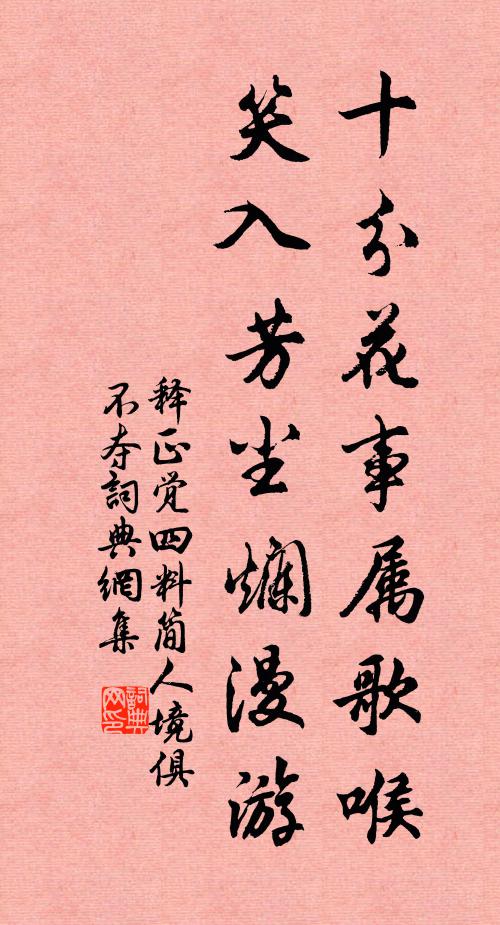 十分花事属歌喉
笑入芳尘烂漫游
释正觉四料简人境俱
不夺詞典網集
詞典网印